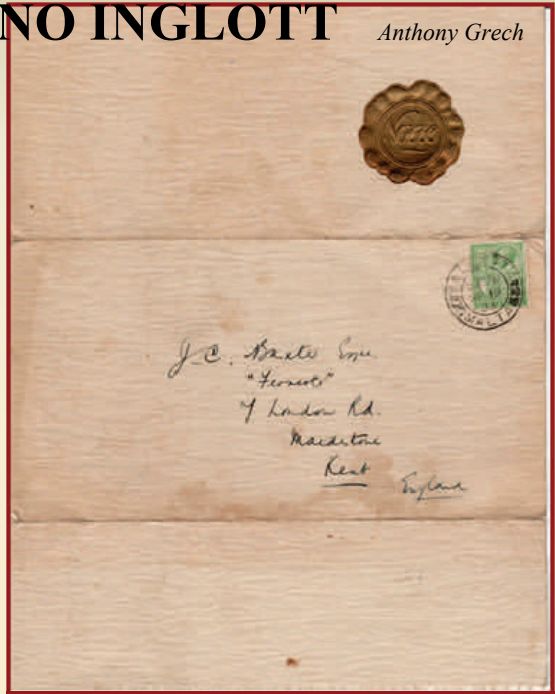 NO INGLOTT
Anthony Grech
MALTA
J. C. Baxter Esqre
7 London Rd.
Maidstone
Kent
England